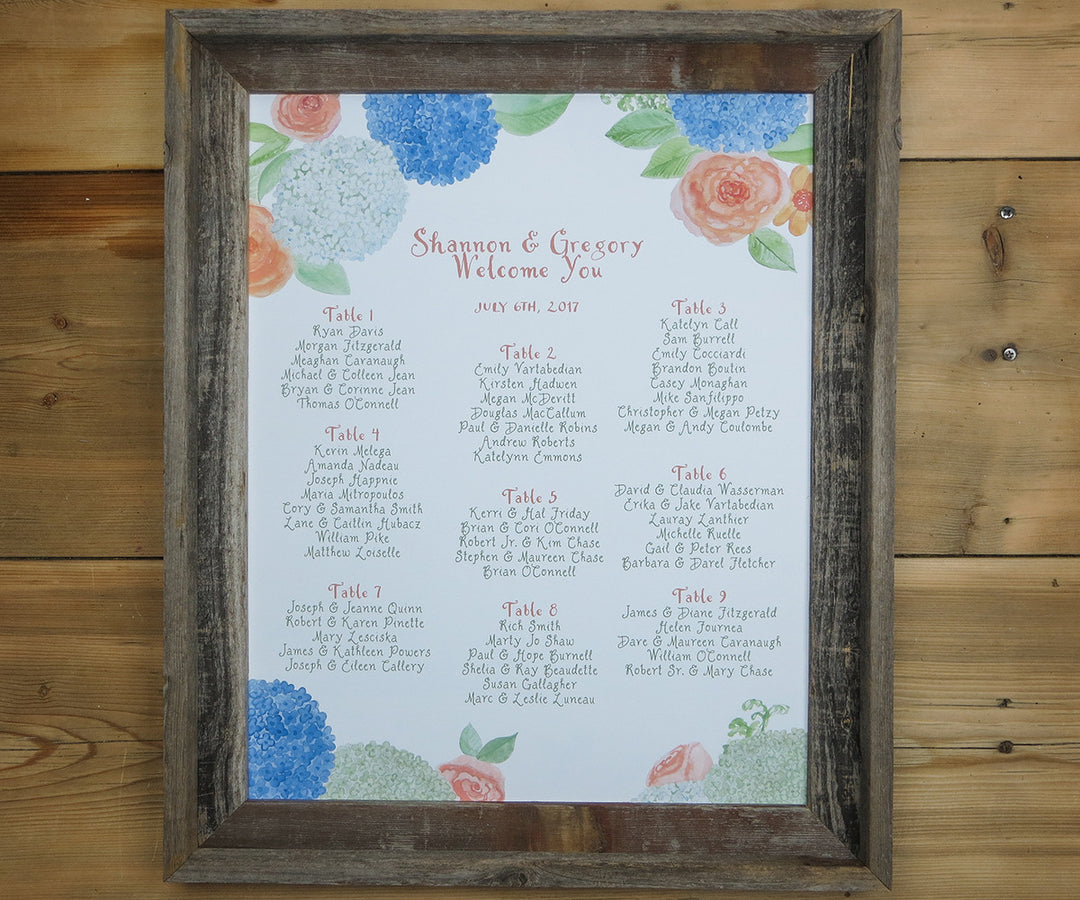 Shannon & Gregory
Welcome You
JULY 6TH, 2017
Table 1
Ryan Davis
Morgan Fitzgerald
Meaghan Cavanaugh
Michael & Colleen Jean
Bryan & Corinne Jean
Thomas O'Connell
Table 2
Emily Vartabedian
Kirsten Hadwen
Megan McDeritt
Douglas MacCallum
Paul & Danielle Robins
Andrew Roberts
Katelynn Emmons
Table 3
Katelyn Call
Sam Burrell
Emily Cocciardi
Brandon Boutin
Casey Monaghan
Mike Sanfilippo
Christopher & Megan Petzy
Megan & Andy Coulombe
Table 4
Kevin Melega
Amanda Nadeau
Joseph Happnie
Maria Mitropoulos
Cory & Samantha Smith
Lane & Caitlin Hubacz
William Pike
Matthew Loiselle
Table 5
Kerri & Hal Friday
Brian & Cori O'Connell
Robert Jr. & Kim Chase
Stephen & Maureen Chase
Brian O'Connell
Table 6
David & Claudia Wasserman
Erika & Jake Vartabedian
Lauray Lanthier
Michelle Ruelle
Gail & Peter Rees
Barbara & Darel Fletcher
Table 7
Joseph & Jeanne Quinn
Robert & Karen Pinette
Mary Lesciska
James & Kathleen Powers
Joseph & Eileen Callery
Table 8
Rich Smith
Marty Jo Shaw
Paul & Hope Burnell
Shelia & Ray Beaudette
Susan Gallagher
Marc & Leslie Luneau
Table 9
James & Diane Fitzgerald
Helen Fournea
Dave & Maureen Cavanaugh
William O'Connell
Robert Sr. & Mary Chase